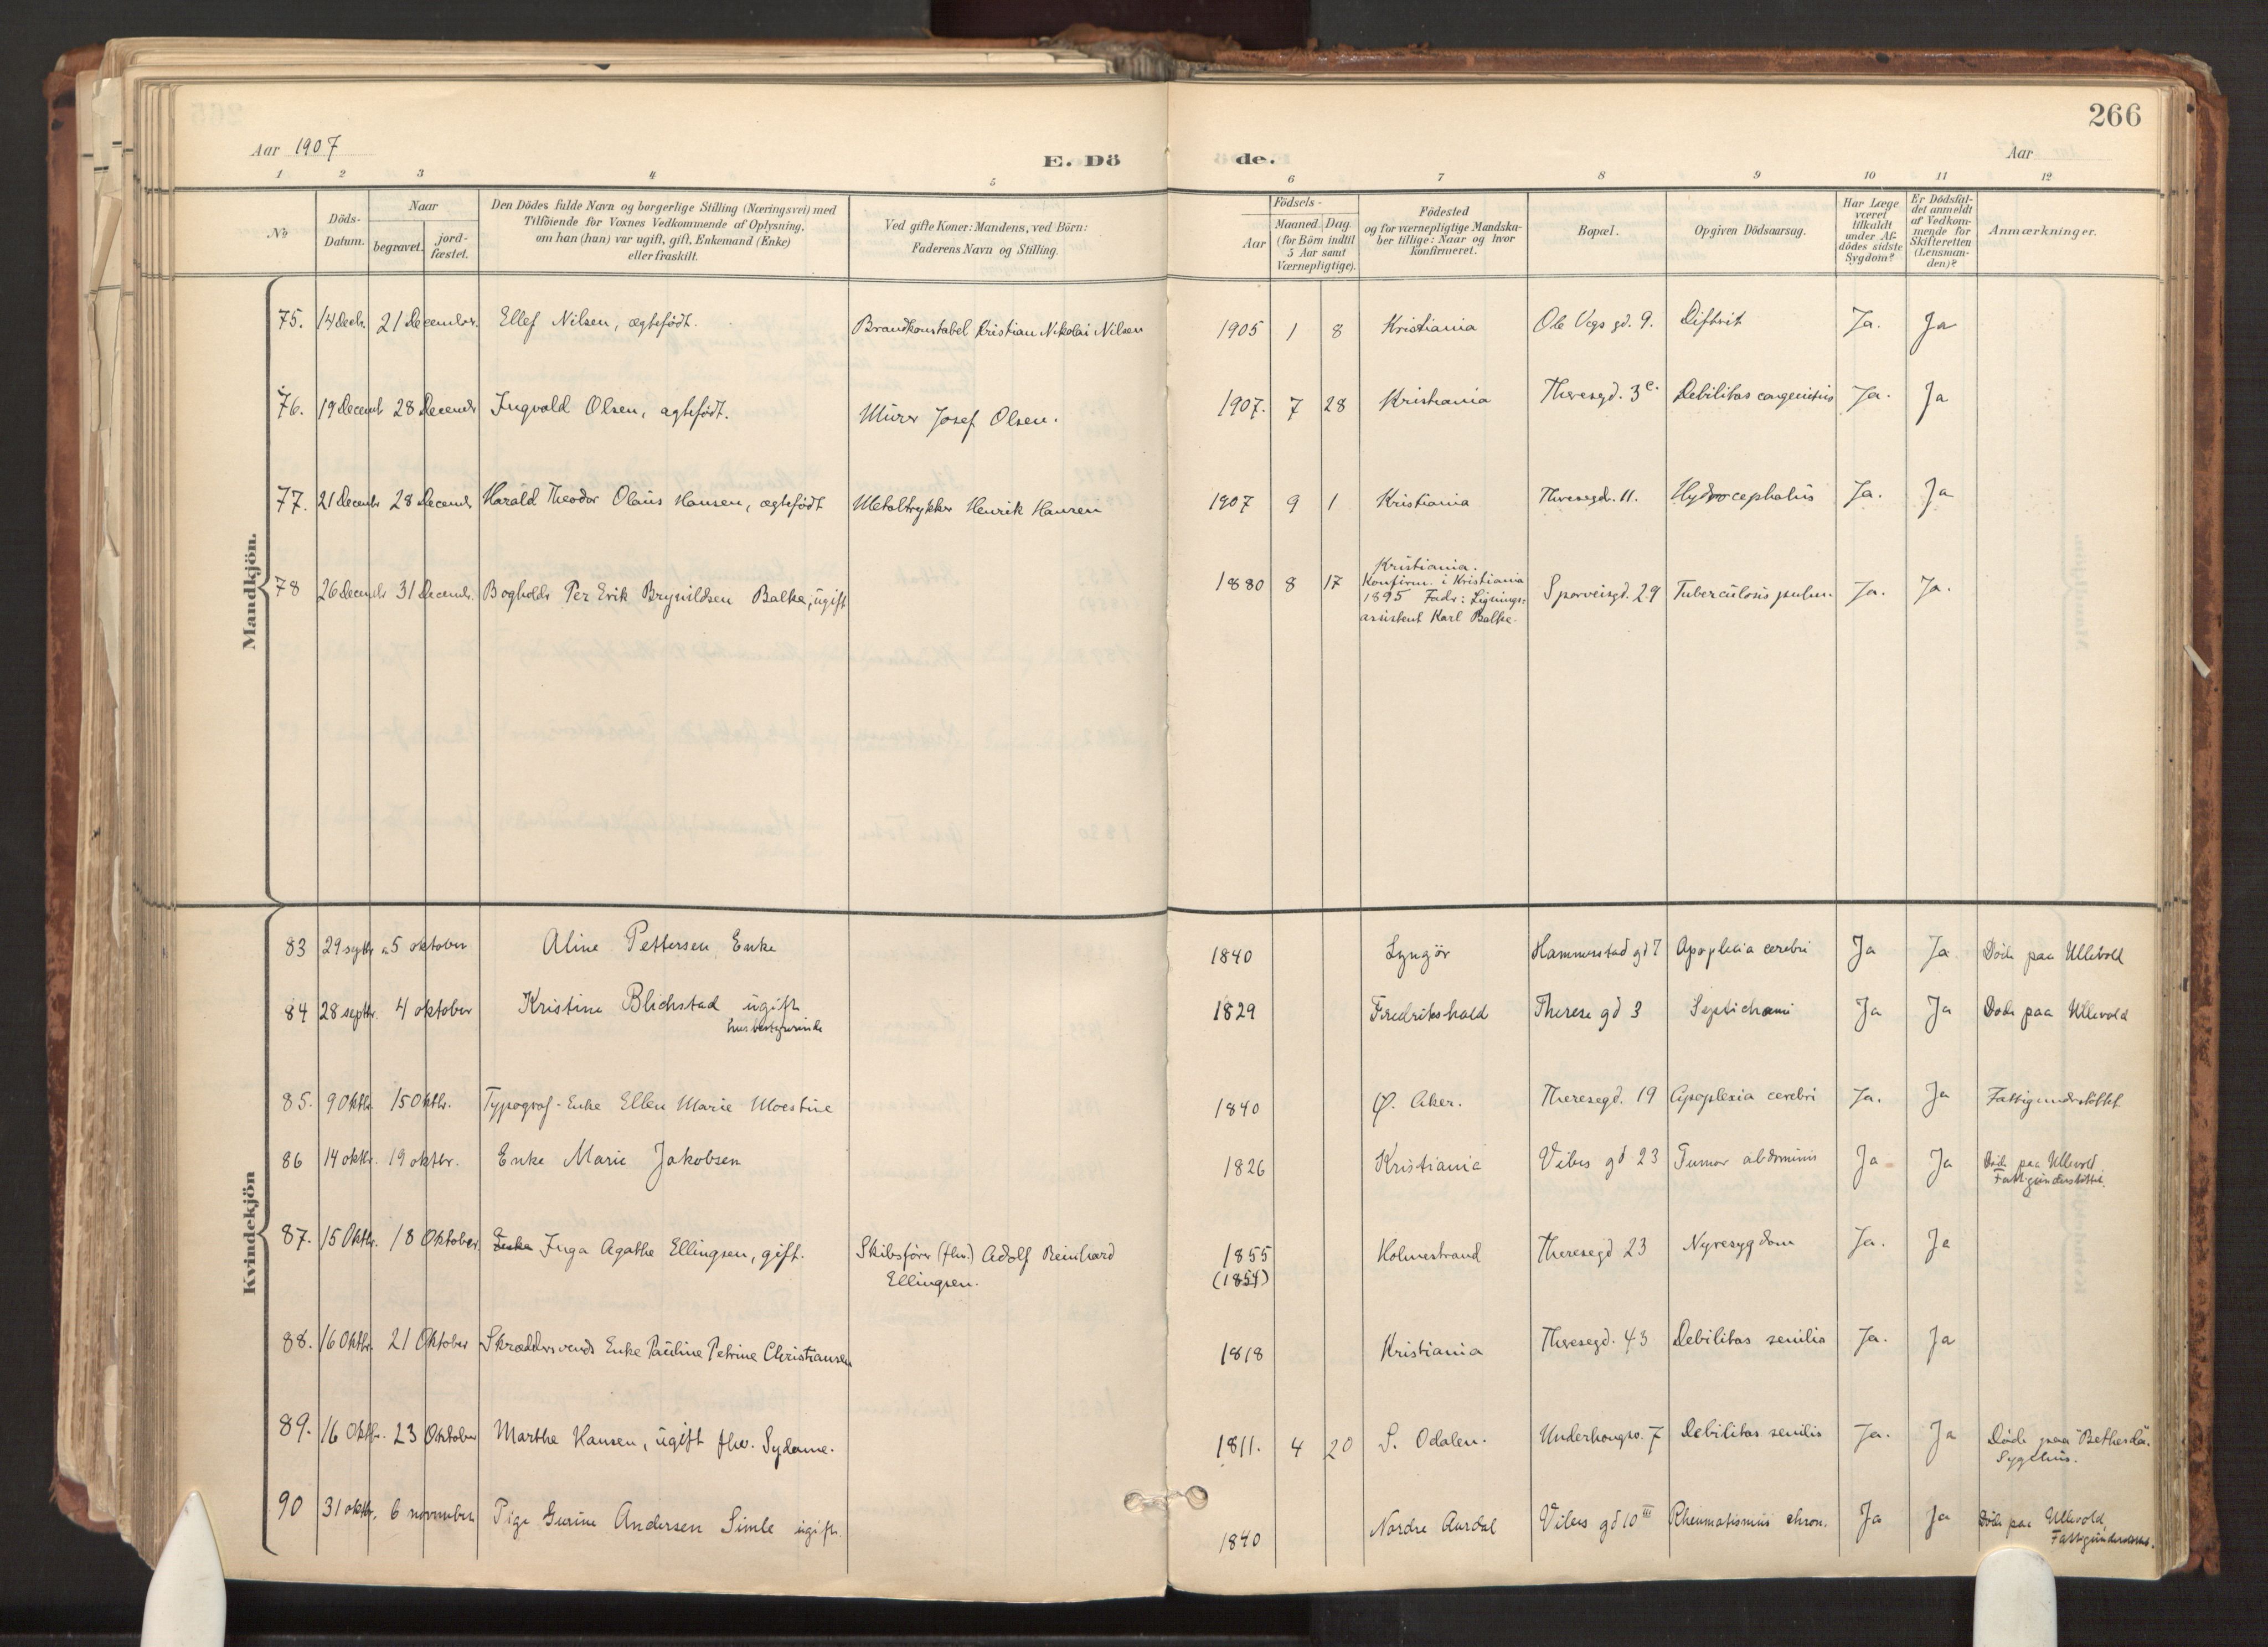 266
Aar 1907
E. Dö
de.
Aar
1 2 3 4 5 6 7 8 9 10 11 12
No
Döds-
Datum.
Naar
begravet.
jord-
fæstet.
Den Dödes fulde Navn og borgerlige Stilling (Næringsvei) med
Tilföiende for Voxnes Vedkommende af Oplysning.
om han (hun) var ugift, gift, Enkemand (Enke)
eller fraskilt.
Ved gifte Koner: Mandens, ved Börn:
Faderens Navn og Stilling.
Födsels-
Aar
Maaned. Dag.
(for Börn indtil
5 Aar samt
Værnepligtige).
Födested
og for værnepligtige Mandska-
ber tillige: Naar og hvor
konfirmeret.
Bopæl.
Opgiven Dödsaarsag.
Har Læge
været
tilkaldt
under Af-
dödes sidste
Sygdom?
Er Dödsfal-
det anmeldt
af Vedkom-
mende for
Skifteretten
(Lensman-
den)?
Anmærkninger.
Mandkjön.
75. 14 Decb. 21 December. Ellef Nilsen, ægtefödt. Brandkonstabel Kristian Nikolai Nilsen 1905 1 8 Kristiania Ole Vigs gd. 9. Difterit Ja. Ja
76. 19 Decemb 28 Decembr Ingvald Olsen, ægtefödt. Murer Josef Olsen. 1907. 7 28 Kristiania Theresegd. 3c. Debilitas congenitus Ja. Ja
77. 21 Decembr 28 Decembr Harald Theodor Olaus Hansen, ægtefödt Metaltrykker Henrik Hansen 1907 9 1 Kristiania Theresegd. 11. Hydrocephalus Ja. Ja
78 26 Decembr 31 Decembr. Bogholder Per Erik Brynildsen Balke, ugift 1880 8 17 Kristiania.
Konfirm. i Kristiania
1895 Fader: Lignings-
assistent Karl Balke.
Sporveisgd. 29 Tuberculosis pulm. Ja. Ja.
Kvindekjön
83 29 septbr 5 oktober Aline Pettersen Enke 1840 Lyngör Hammerstad gd 7 Apoplexia cerebri Ja Ja Döde paa Ullevold
84 28 septbr. 4 oktober Kristine Blichstad ugift
husbestyrerinde
1829 Fredrikshald Therese gd 3 Septichæmi Ja Ja Döde paa Ullevold
85. 9 Oktb. 15 Oktbr. Typograf-Enke Ellen Marie Moestue 1840 Ø. Aker. Theresegd. 19 Apoplexia cerebri Ja. Ja Fattigunderstöttet
86 14 oktbr. 19 oktbr. Enke Marie Jakobsen 1826 Kristiania Vibes gd 23 Tumor abdominis Ja Ja Döde paa Ullevold.
Fattigunderstöttet.
87. 15 Oktbr. 18 Oktober. Enke Inga Agathe Ellingsen, gift. Skibsförer (fhv.) Adolf Reinhard
Ellingsen.
1855
(1854)
Holmestrand Theresegd 23 Nyresygdom Ja. Ja
88. 16 Oktbr. 21 Oktober Skræddersvends Enke Pauline Petrine Christiansen 1818 Kristiania Theresegd. 43 Debilitas senilis Ja. Ja
89. 16 Oktbr. 23 Oktober Marthe Hansen, ugift fhv. Sydame. 1811. 4 20 S. Odalen. Underhaugsv. 7 Debilitas senilis Ja. Ja Döde paa "Bethesda"
Sygehus.
90 31 oktbr. 6 november Pige Gurine Andersen Simle ugift. 1840 Nordre Aurdal Vibes gd 10 III Rheumatismus chron. Ja Ja Döde paa Ullevold
Fattigunderstöttet.